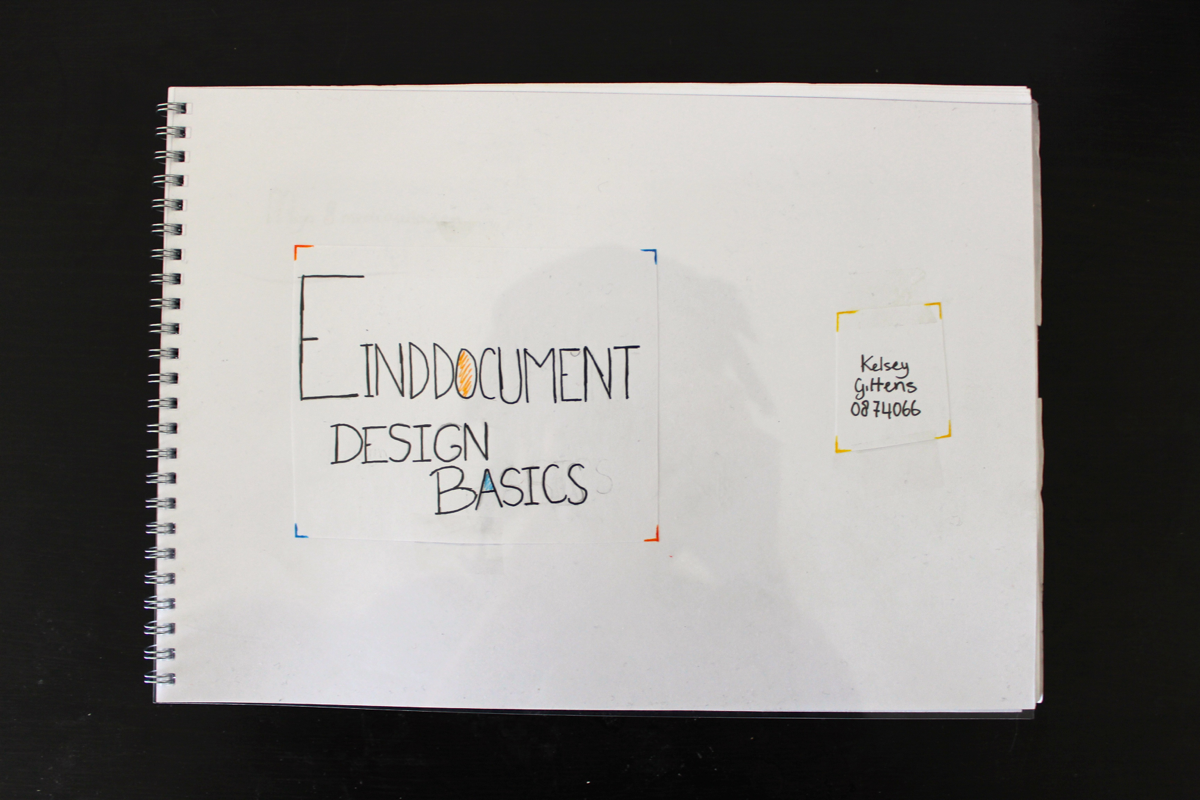 EINDDOCUMENT
DESIGN
BASICS
Kelsey
Gittens
0874066